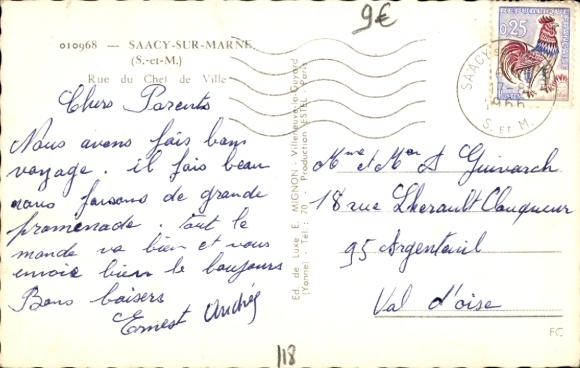 9€
010968 — SAACY-SUR-MARNE
(S.-et-M.)
Rue du Chef de Ville
0,25
SAACY
1966
S. ET M.
Chers Parents
Nous avons fais bon
voyage. il fais beau
nous faisons de grande
promenade. tout le
monde va bien et vous
envoie bien le boujours
Bons baisers
Ernest Andrée
Ed. de Luxe E. MIGNON - Villeneuve-la-Guyard
(Yonne) - Tél : 70 - Production ESTEL - Paris
Mme et Mer A Guivarch
18 rue Lherault Clanqueur
95 Argenteuil
Val d'oise
FC
118